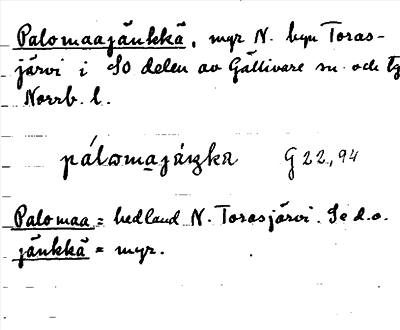 Palomaajänkkä, myr N. byn Toras-
järvi i SO delen av Gällivare sn. och tg
Norrb. l.
pálomajáŋka G 22,94
Palomaa = hedland N. Torasjärvi. Se d.o.
jänkkä = myr.